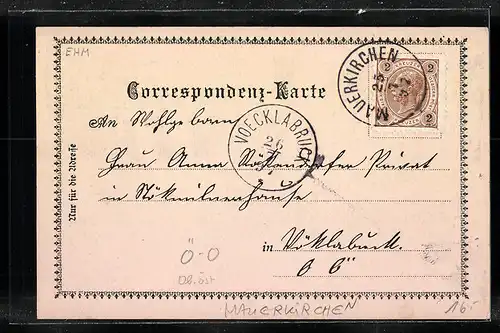 EHM
Correspondenz-Karte
MAUERKIRCHEN
25
2 2
2 2
An Wohlgeboren
VOECKLABRUCK
26
Frau Anna Privat
in
Nur für die Adresse
in Vöklabuck
Ö-O
Ob. öst
MAUERKIRCHEN
16.-